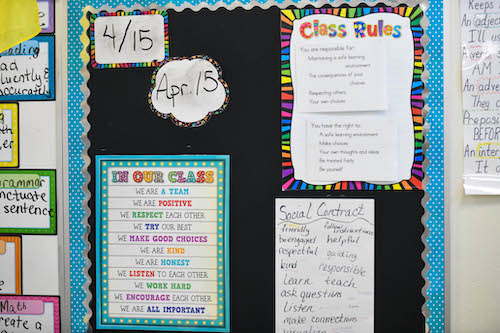 4/15
Apr. 15
Class Rules
You are responsible for:
Maintaining a safe learning
environment
The consequences of your
choices
Respecting others
Your own choices
You have the right to:
A safe learning environment
Make choices
Your own thoughts and ideas
Be treated fairly
Be yourself
IN OUR CLASS
WE ARE A TEAM
WE ARE POSITIVE
WE RESPECT EACH OTHER
WE TRY OUR BEST
WE MAKE GOOD CHOICES
WE ARE KIND
WE ARE HONEST
WE LISTEN TO EACH OTHER
WE WORK HARD
WE ENCOURAGE EACH OTHER
WE ARE ALL IMPORTANT
Social Contract
friendly follow instructions
be engaged helpful
respectful guiding
kind responsible
learn teach
ask questions
listen
make connections
Grammar
sentence
Math
create a
Keeps
An adje
I'll u
AM
An adve
They
Preposi
BEFOR
An inter
It c